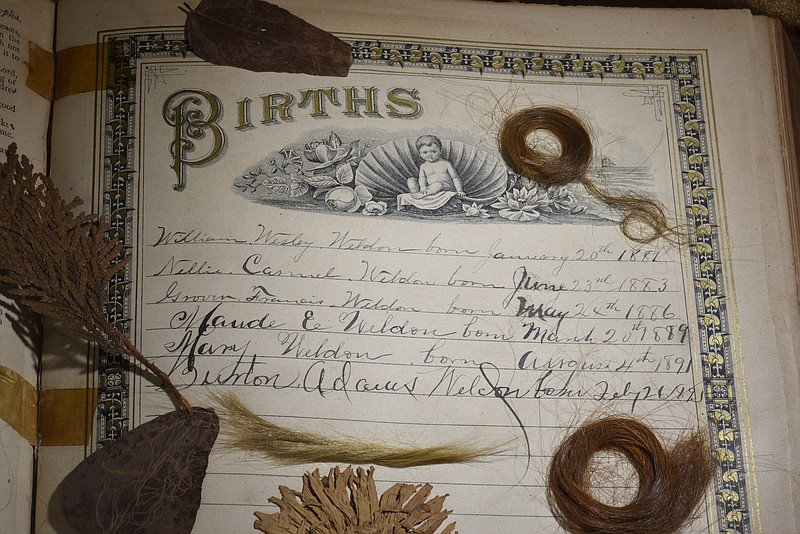 Births
William Wesley Weldon born January 20th 1881
Nellie Carmel Weldon born June 23rd 1883
Grover Francis Weldon born May 24th 1886
Maude E Weldon born March 20th 1889
Mary Weldon born August 4th 1891
Burton Adams Weldon born